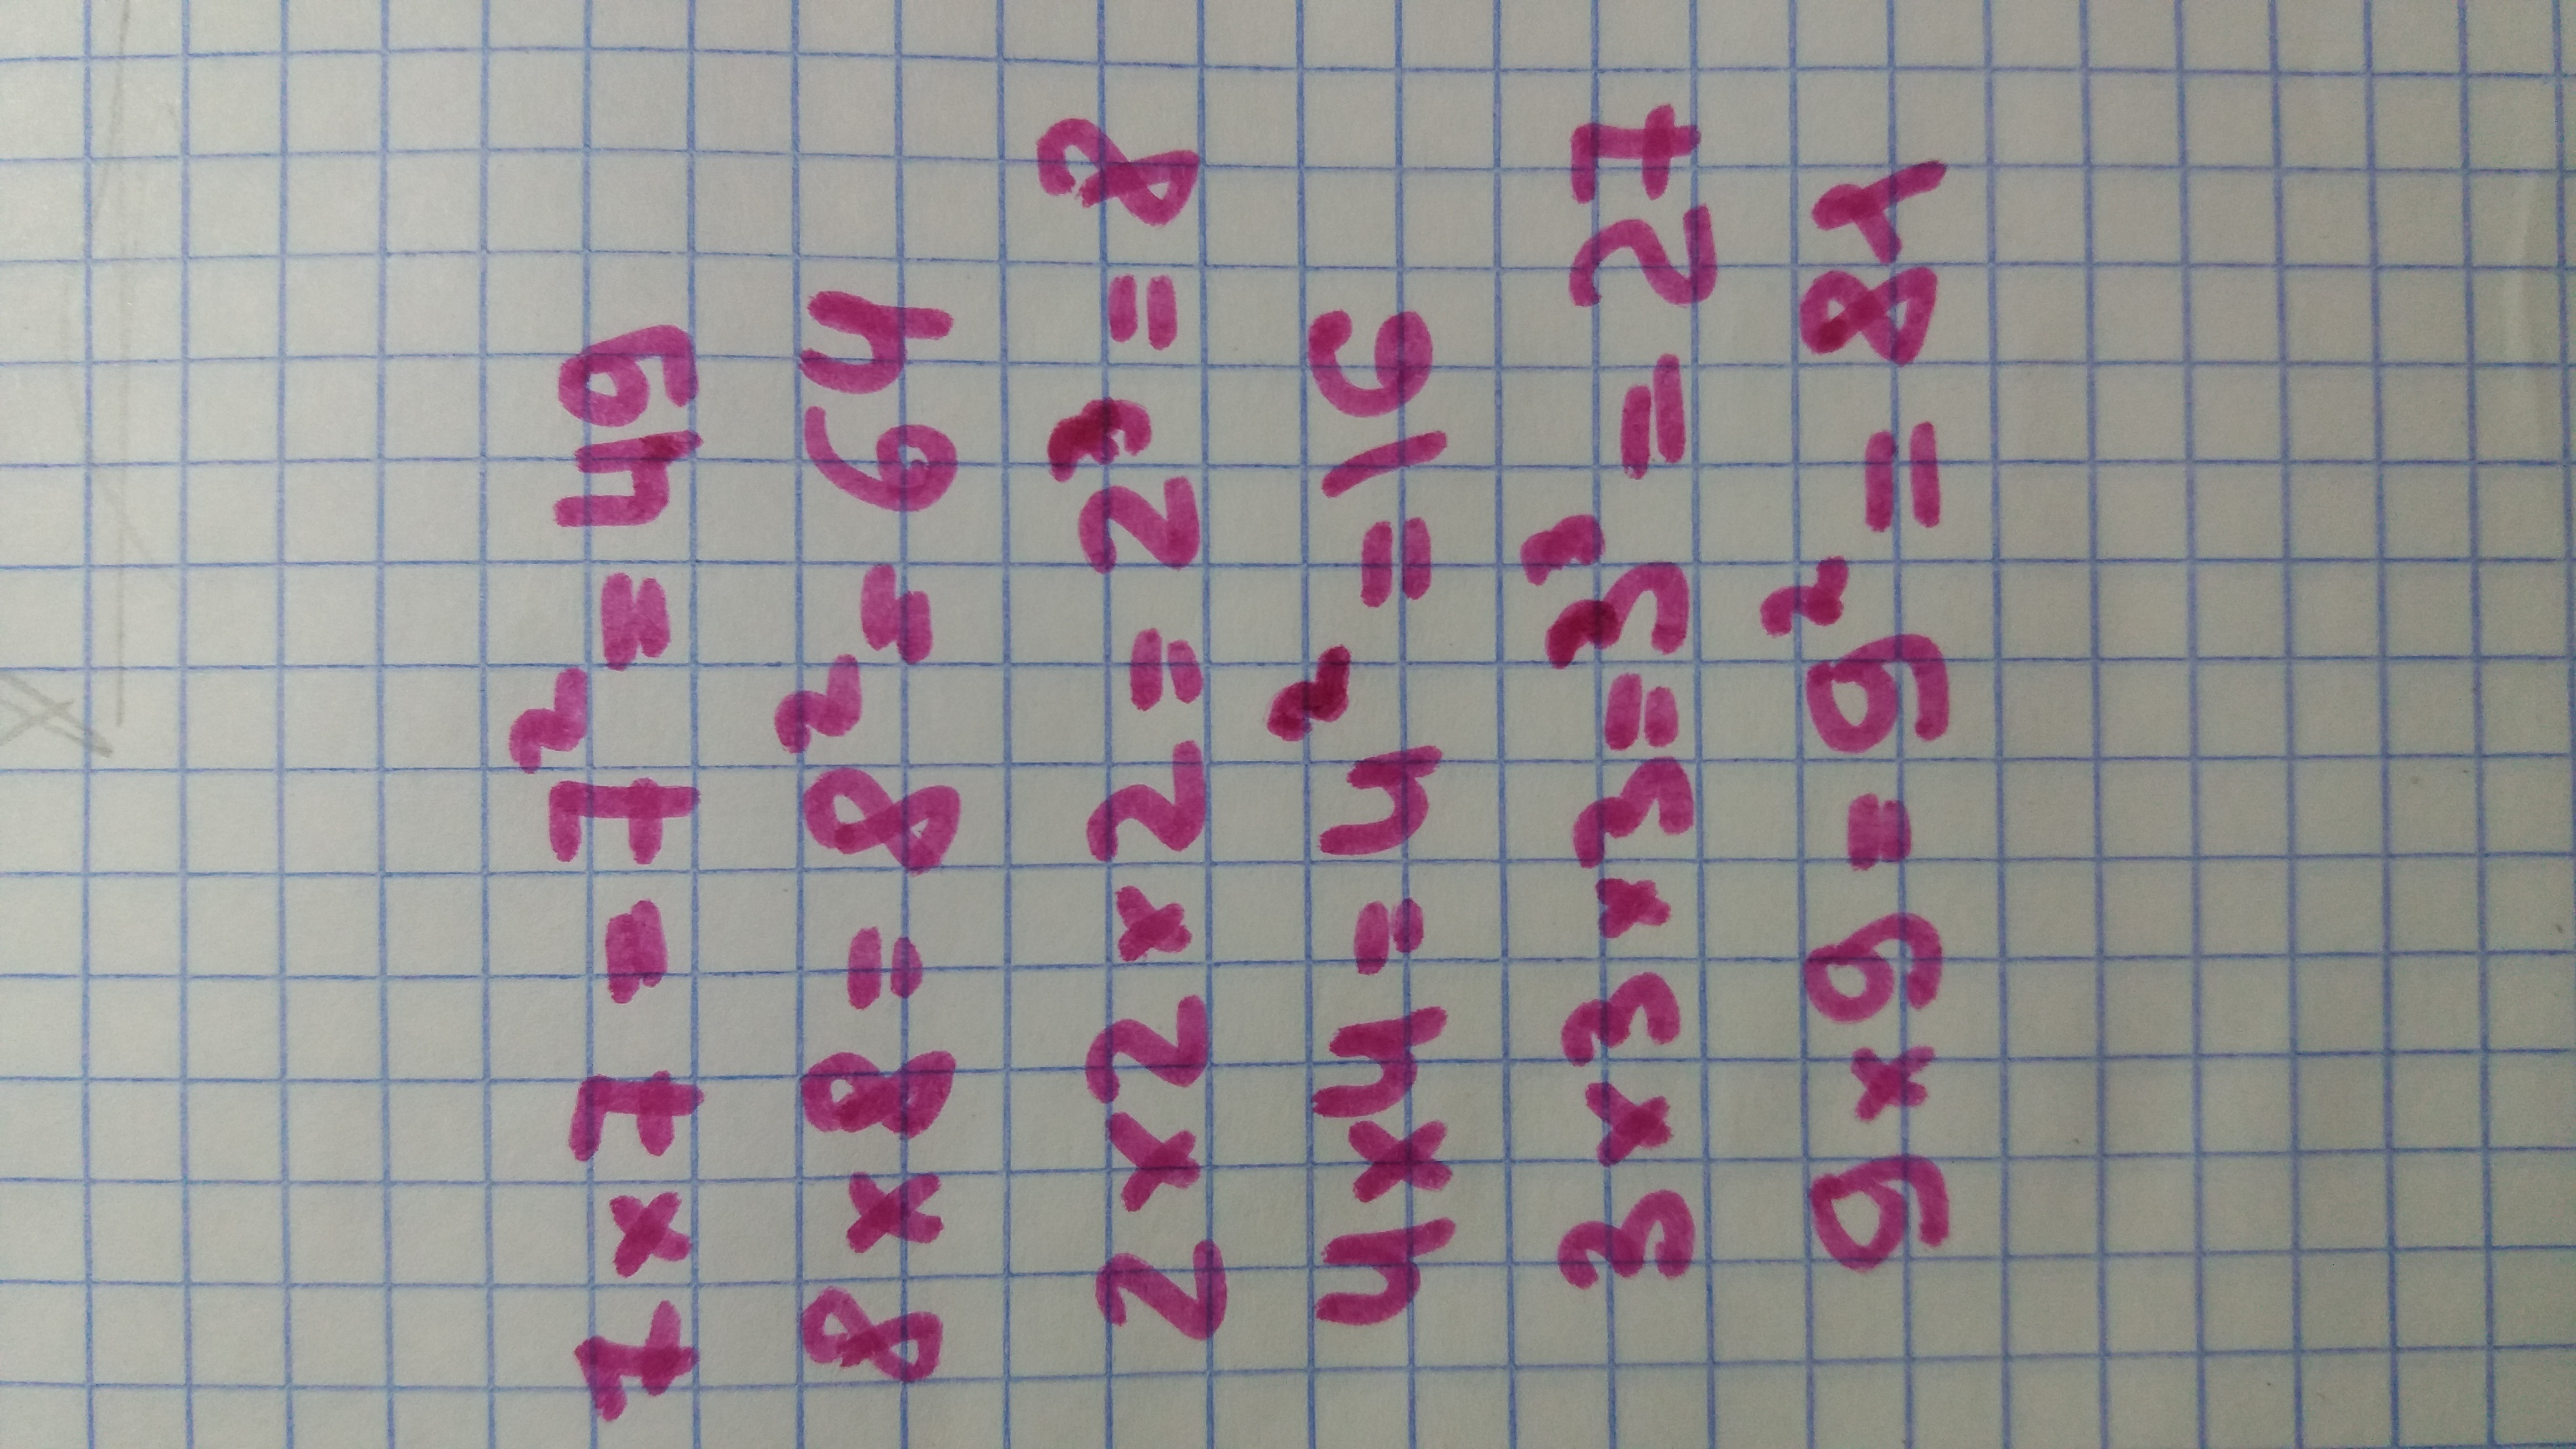 7 x 7 = 7² = 49
8 x 8 = 8² = 64
2 x 2 x 2 = 2³ = 8
4 x 4 = 4² = 16
3 x 3 x 3 = 3³ = 27
9 x 9 = 9² = 81